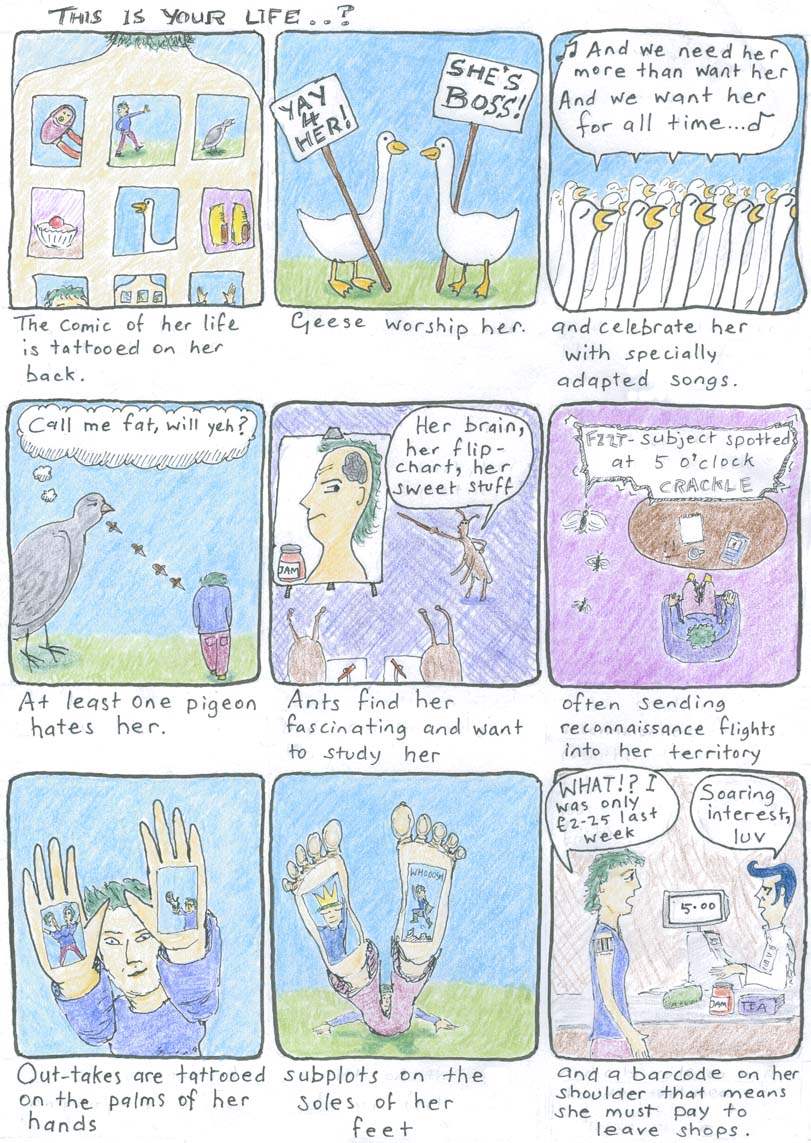 THIS IS YOUR LIFE...?
The comic of her life
is tattooed on her
back.
YAY
4
HER!
SHE'S
BOSS!
Geese worship her.
And we need her
more than want her
And we want her
for all time...
and celebrate her
with specially
adapted songs.
Call me fat, will yeh?
At least one pigeon
hates her.
Her brain,
her flip-
chart, her
sweet stuff
JAM
Ants find her
fascinating and want
to study her
FZZT- subject spotted
at 5 o'clock
CRACKLE
often sending
reconnaissance flights
into her territory
Out-takes are tattooed
on the palms of her
hands
WHOOOSH
subplots on the
soles of her
feet
WHAT!? I
was only
£2-25 last
week
Soaring
interest,
luv
5.00
JAM
TEA
and a barcode on her
shoulder that means
she must pay to
leave shops.